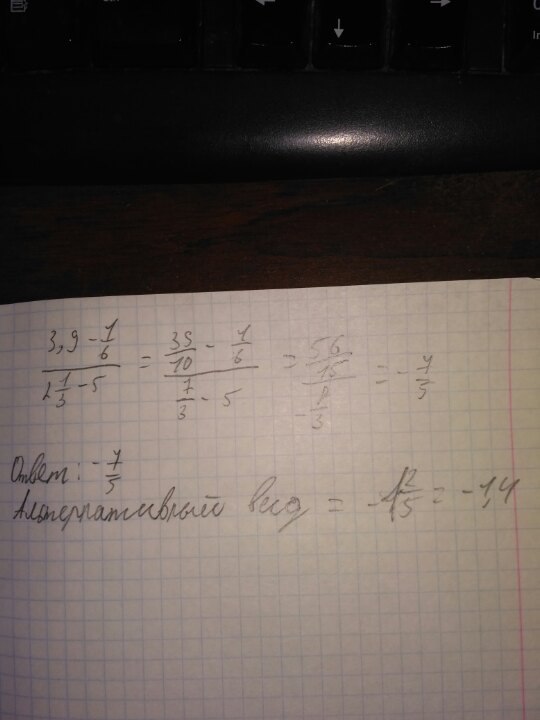 (3,9 - 1/6) / (2 1/3 - 5) = (39/10 - 1/6) / (7/3 - 5) = (56/15) / (-8/3) = -7/5
Ответ: -7/5
Альтернативный вид = -1 2/5 = -1,4